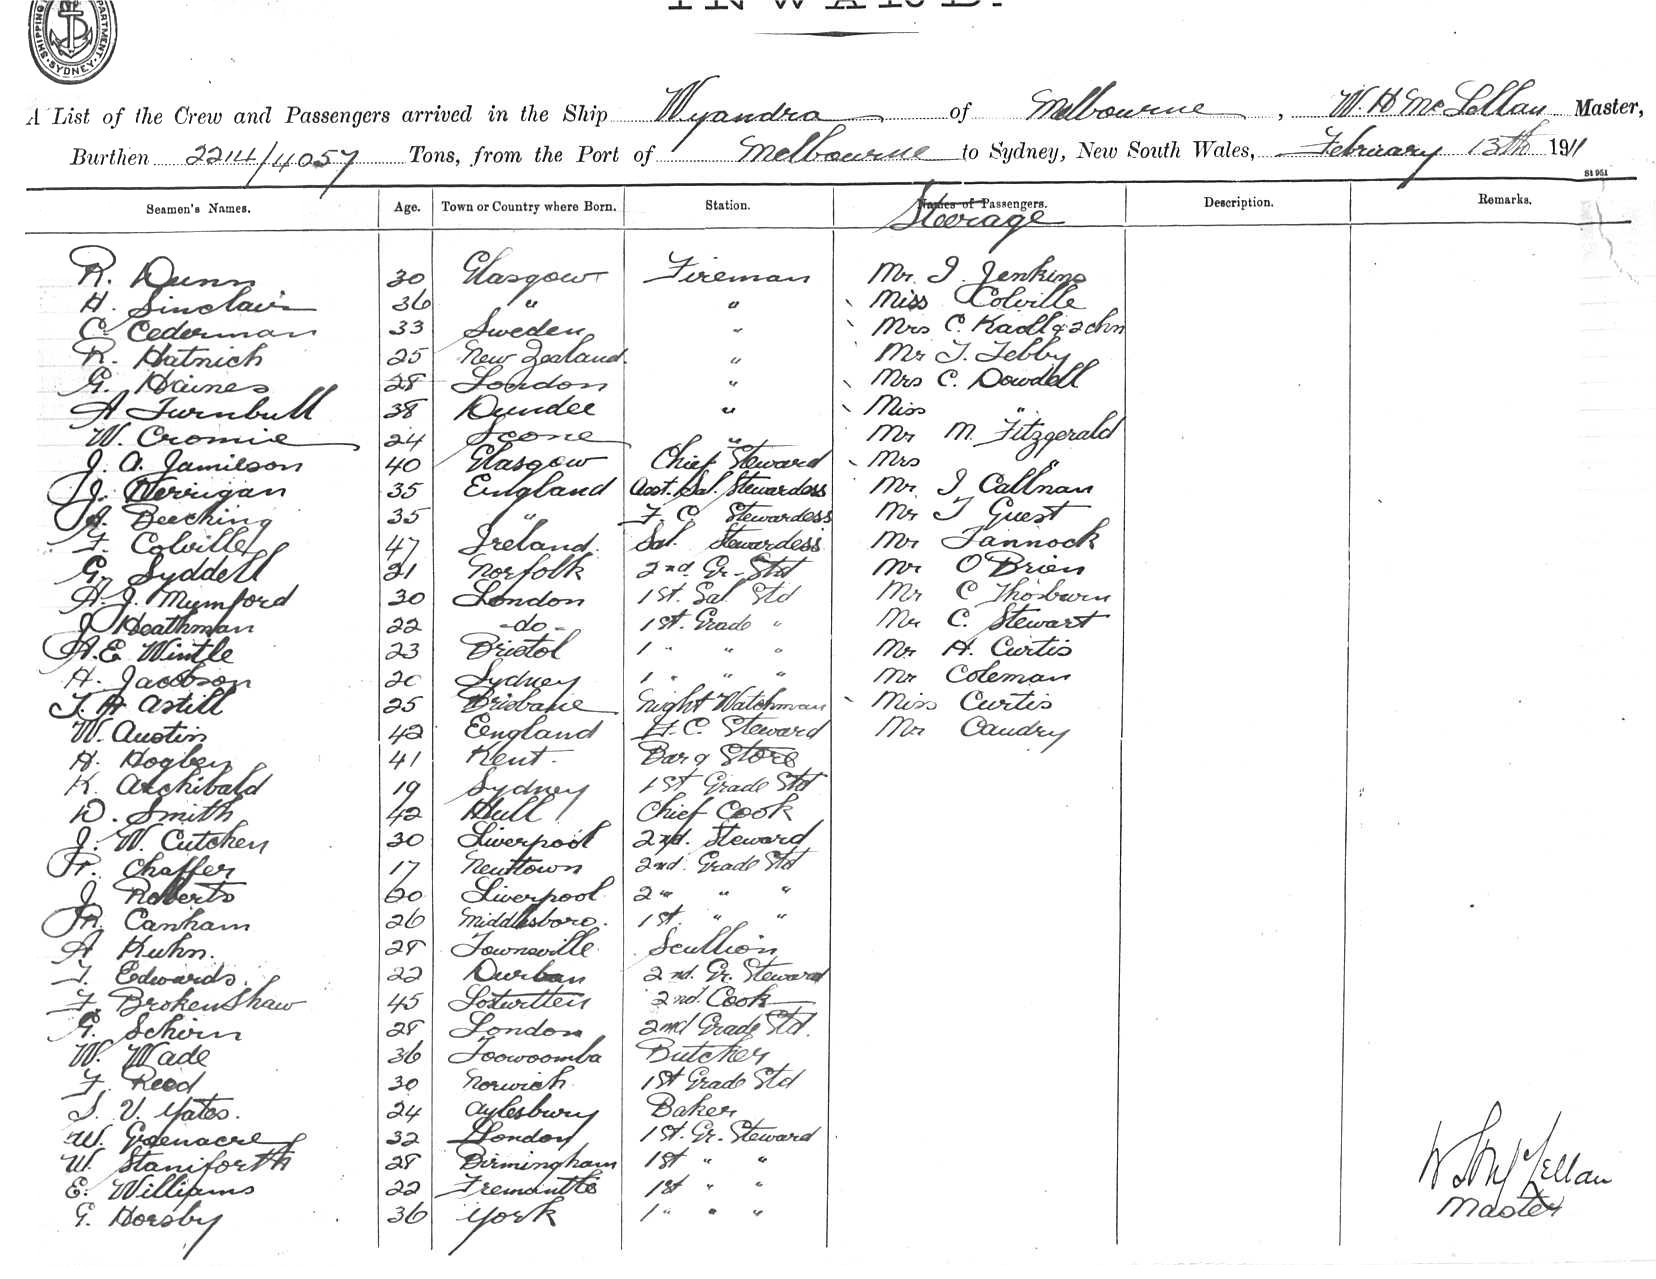 INWARD.
SHIPPING DEPARTMENT. SYDNEY.
A List of the Crew and Passengers arrived in the Ship Wyandra of Melbourne, W. H McLellan Master,
Burthen 2214/4057 Tons, from the Port of Melbourne to Sydney, New South Wales, February 13th 1911
St 951
Seamen's Names. Age. Town or Country where Born. Station. Names of Passengers. Description. Remarks.
Steerage
R. Dunn 30 Glasgow Fireman Mr. J. Jenkins
H. Sinclair 36 " " Miss Colville
C. Cederman 33 Sweden " Mrs C.
R. Hatnich 25 New Zealand. " Mr T. Tebby
G. Haines 28 London " Mrs C. Dowdell
A Turnbull 38 Dundee " Miss "
W. Cromie 24 Scone " Mr M. Fitzgerald
J. A. Jamieson 40 Glasgow Chief Steward Mrs "
J. Kerrigan 35 England Asst. Sal. Stewardess Mr. J Callnan
A. Beeching 35 " F. C. Stewardess Mr T Guest
F. Colville 47 Ireland. Sal. Stewardess Mr Tannock
G. Syddell 21 Norfolk 2nd. Gr. Std Mr O'Brien
A. J. Mumford 30 London 1st. Sal Std Mr C Thosburn
J Heathman 22 -do- 1st. Grade " Mr C. Stewart
A. E. Wintle 23 Bristol 1 " " " Mr H. Curtis
H. Jacobson 20 Sydney 1 " " " Mr Coleman
T. H Astill 25 Brisbane Night Watchman Miss Curtis
W. Austin 42 England F. C. Steward Mr Caudry
H. Hogben 41 Kent. Bar & Store
K. Archibald 19 Sydney 1st Grade Std
D. Smith 42 Hull Chief Cook
J. W. Cutchey 30 Liverpool 2nd. Steward
R. Chaffer 17 Newtown 2nd. Grade Std
J Roberts 20 Liverpool 2 " " "
R. Canham 26 Middlesboro. 1st. " "
A Kuhn. 28 Townsville Scullion
T. Edwards. 22 Durban 2nd. Gr. Steward
F. Brokenshaw 45 2nd. Cook
G. Schirn 28 London 2nd Grade Std.
W. Wade 36 Toowoomba Butcher
F. Reed 30 Norwich 1st Grade Std
S. V. Yates. 24 Aylesbury Baker
W. Greenacre 32 London 1st. Gr. Steward
W. Staniforth 28 Birmingham 1st " "
E. Williams 22 Fremantle 1st " "
G. Horsby 36 York 1 " " "
W H McLellan
Master